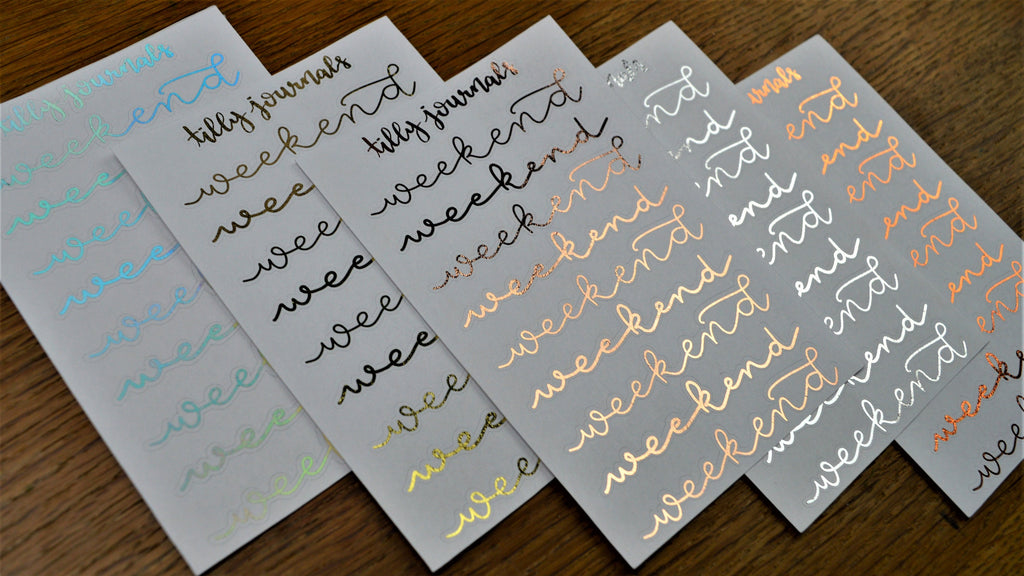 tilly journals
weekend
wee
wee
wee
wee
wee
wee
wee
wee
tilly journals
weekend
wee
wee
wee
wee
wee
wee
wee
wee
tilly journals
weekend
weekend
weekend
weekend
weekend
weekend
weekend
weekend
weekend
nals
end
end
end
end
end
end
end
weekend
weekend
rnals
end
end
end
end
end
end
end
week
wee